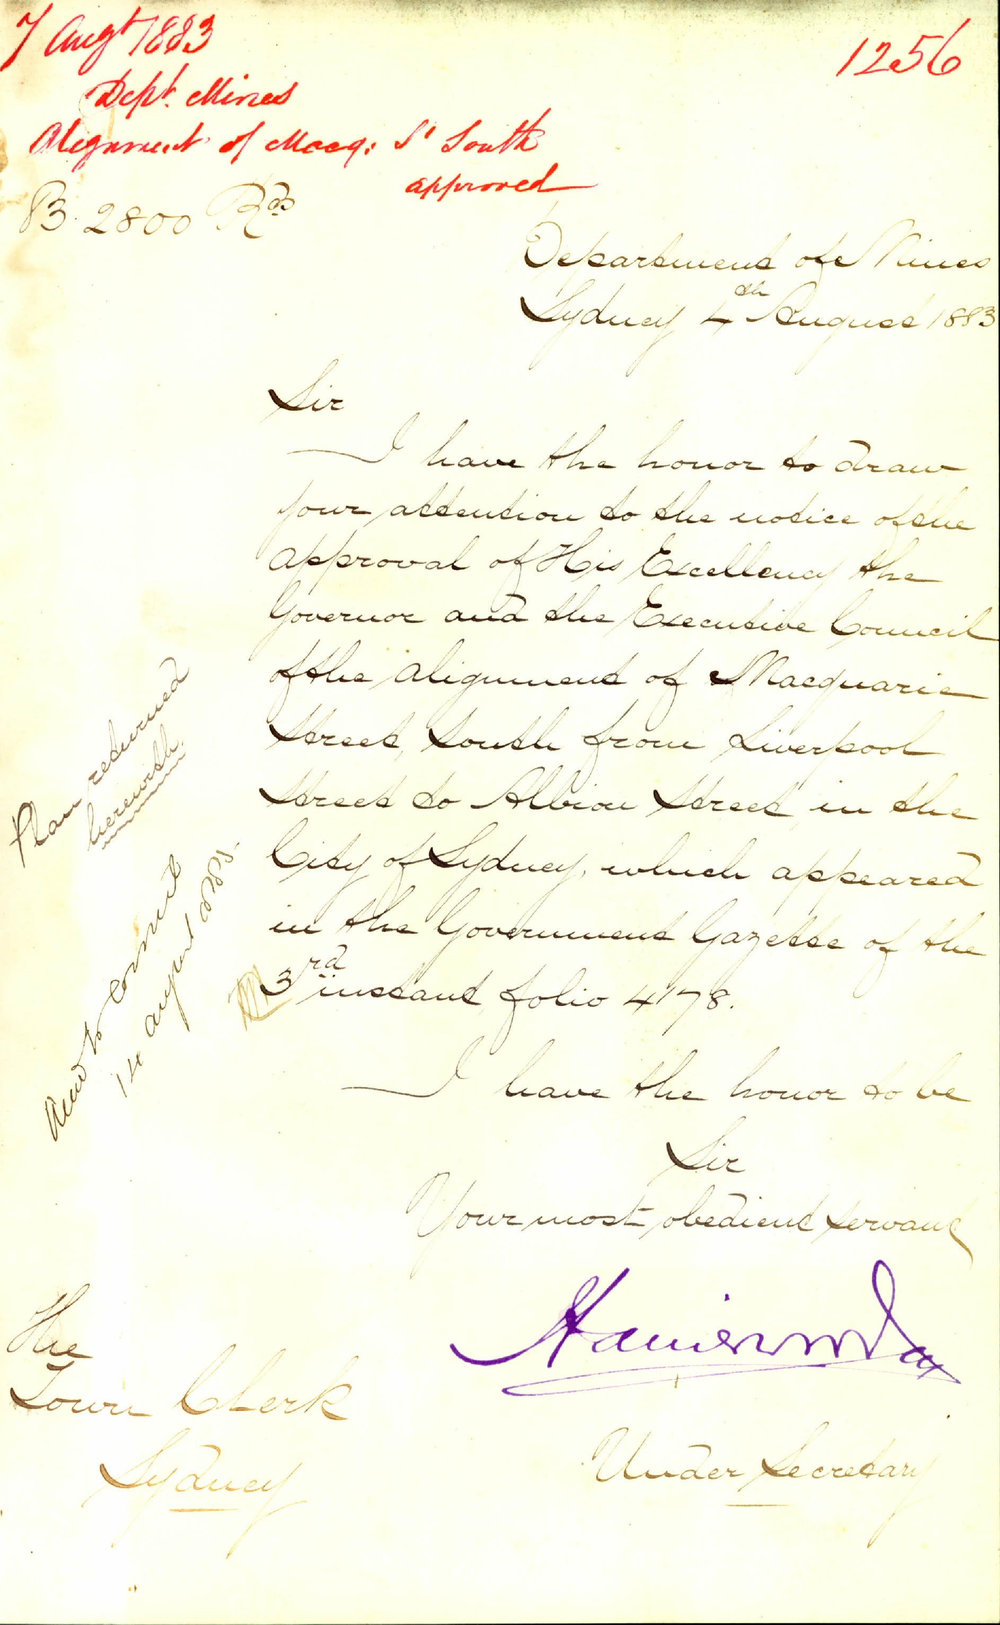 7 Augt 1883
1256
Dept. Mines
Alignment of Macq: St South
approved
B. 2800 Rds
Department of Mines
Sydney 4th August 1883
Sir
I have the honor to draw
your attention to the notice of the
approval of His Excellency the
Governor and the Executive Council
of the alignment of Macquarie
Street, South from Liverpool
Street to Albion Street, in the
City of Sydney, which appeared
in the Government Gazette of the
3rd instant folio 478.
I have the honor to be
Sir
Your most obedient servant
Under Secretary
The
Town Clerk
Sydney
Plan returned
herewith.
to Commit
14 august 1883.